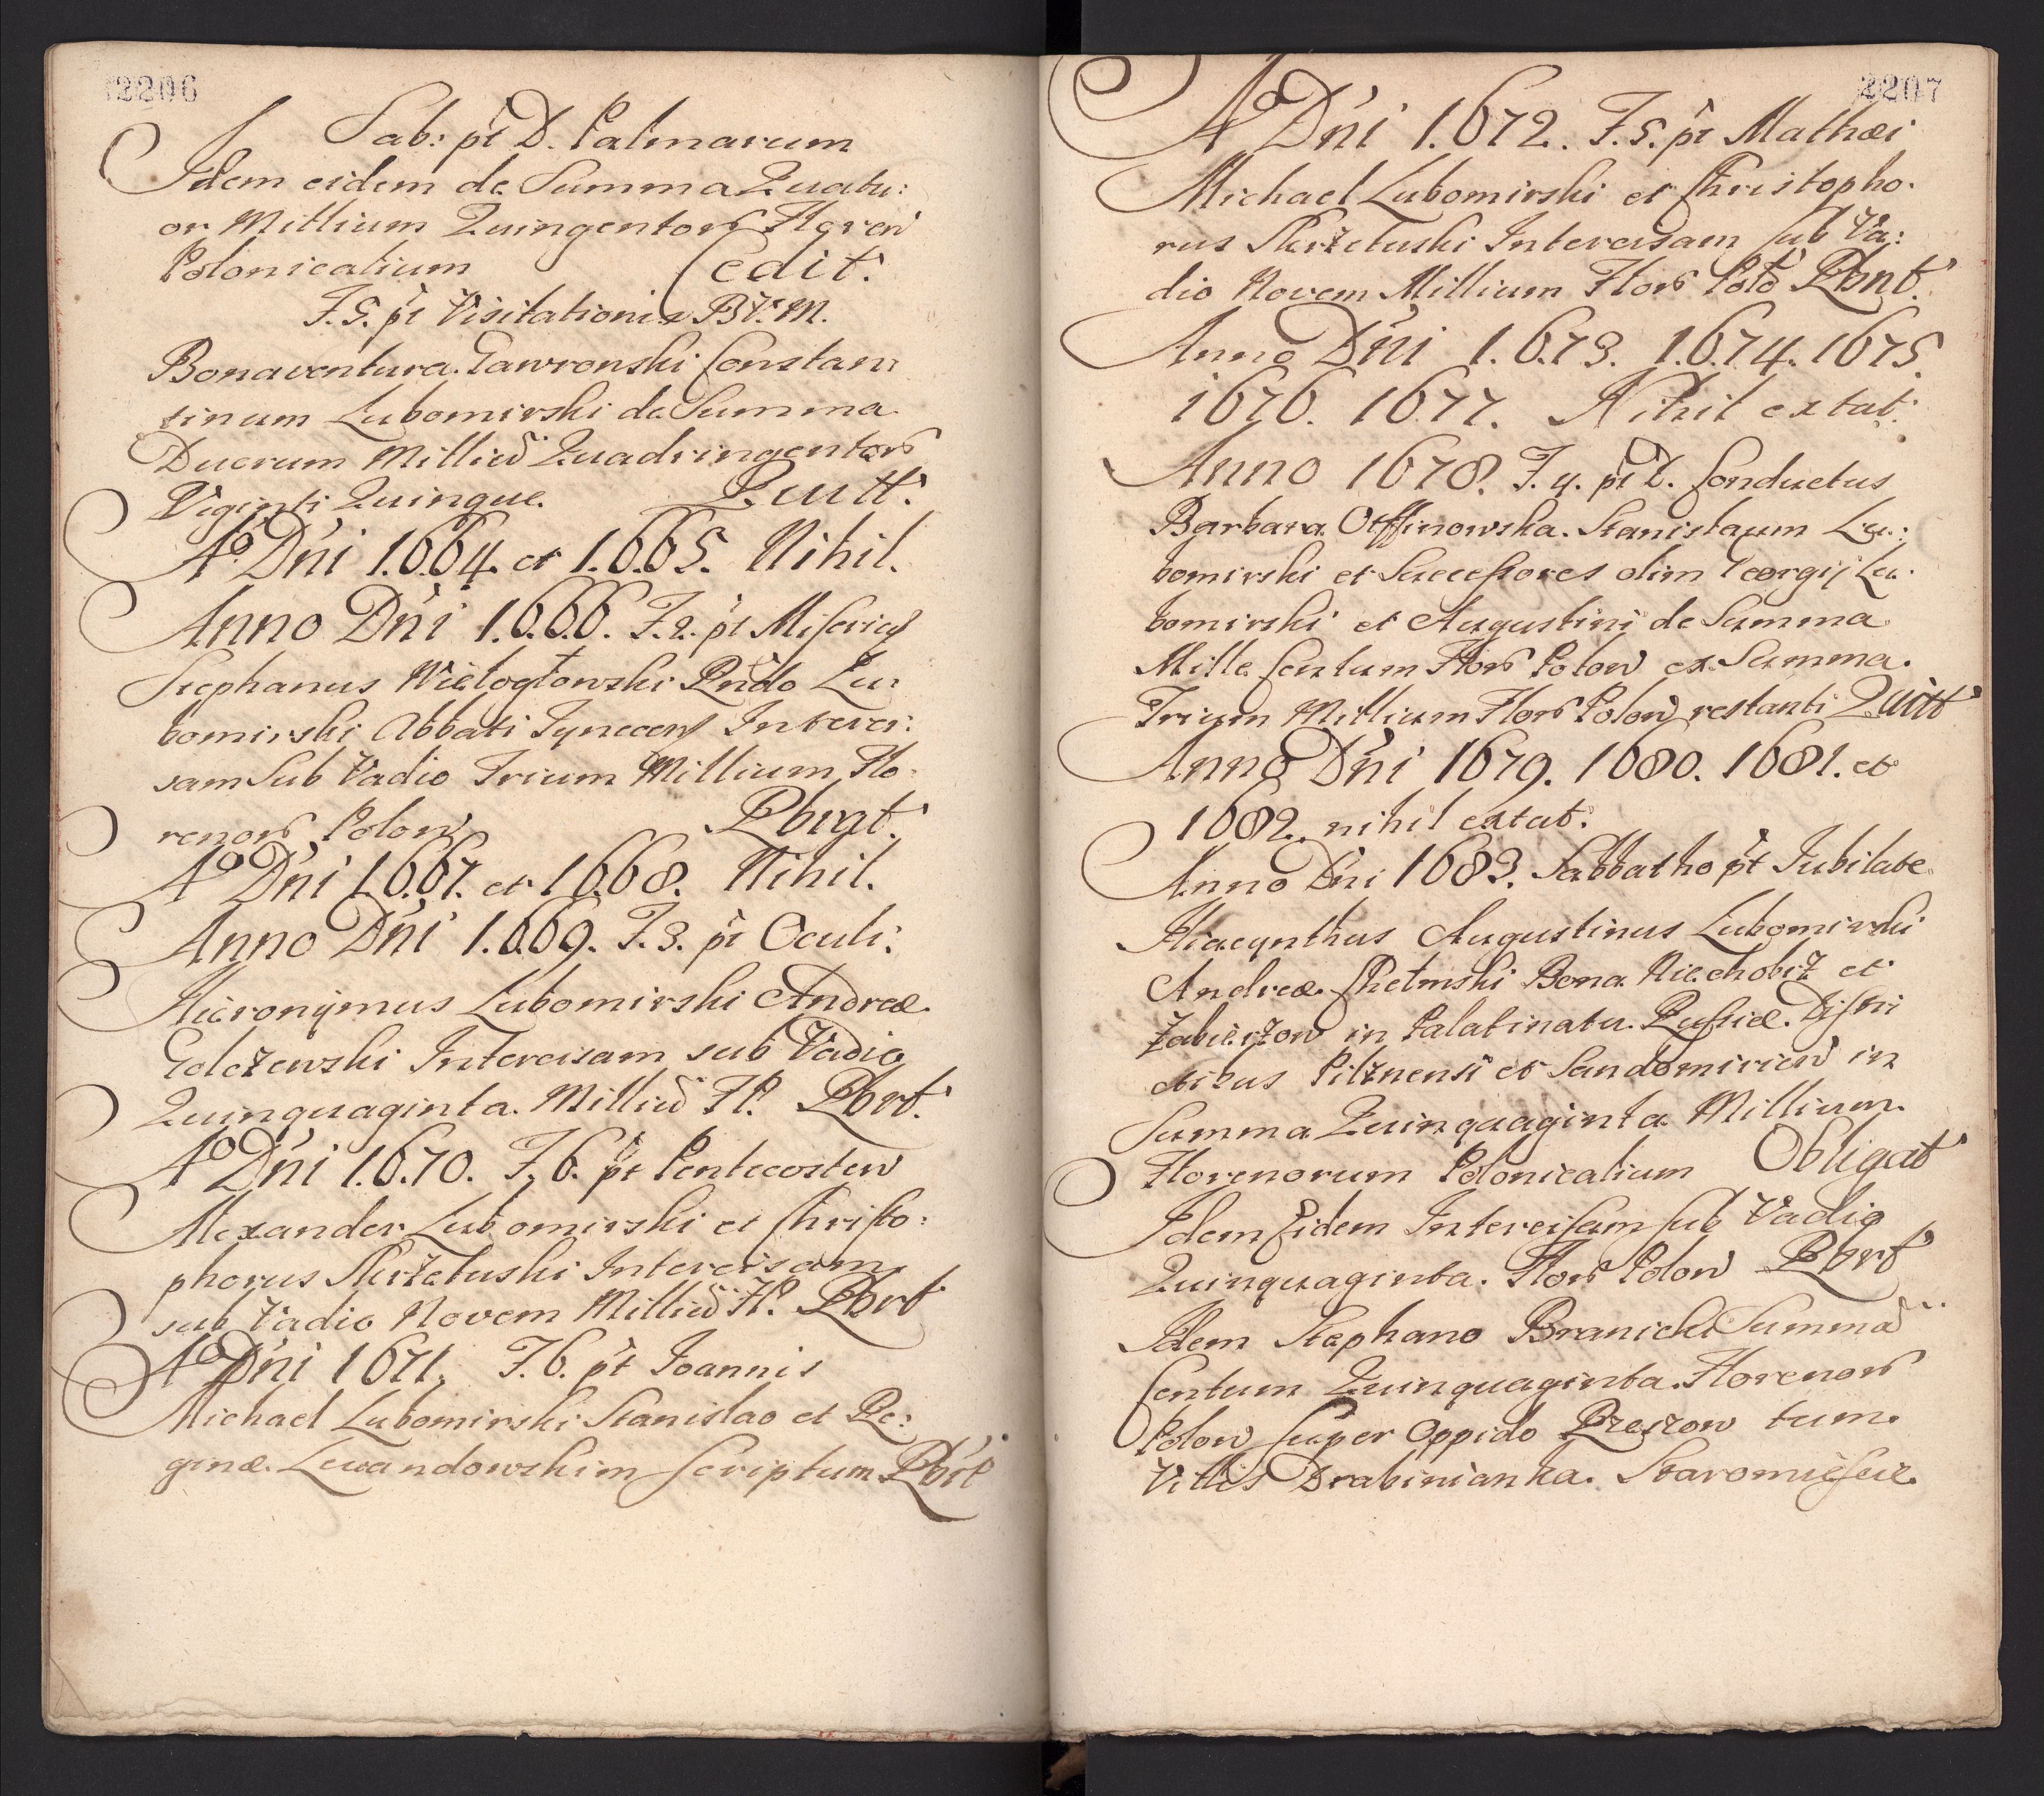 2206
Sab: pt D. Palmarum
Idem eidem de Summa Quatu:
or Millium Quingentor Floren
Polonicalium Cedit.
F. 5. pt Visitationis B.V.M.
Bonaventura Gawronski Constan:
tinum Lubomirski de Summa
Duorum Milliu Quadringentor
Viginti Quinque. Quitt.
Ao Dni 1.6.64. et 1.6.65. Nihil.
Anno Dni 1.6.6.6. F. 2. pt Misericor
Stephanus Wielogłowski Rndo Lu:
bomirski Abbati Tynecen Interci:
sam Sub Vadio Trium Millium Flo:
renor Polon Rbgt.
Ao Dni 1.6.67. et 1.6.68. Nihil.
Anno Dni 1.6.69. F. 3. pt Oculi:
Hieronymus Lubomirski Andreæ
Golczewski Intercisam sub Vadio
Quinquaginta Milliu Fl. Rbrt.
Ao Dni 1.6.70. F. 6. pt Pentecosten
Alexander Lubomirski et Christo:
phorus Skrzetuski Intercisam
sub Vadio Novem Milliu Fl. Rbrt
Ao Dni 1671. F. 6. pt Joannis
Michael Lubomirski Stanislao et Re:
ginæ Lewandowskim scriptum Rbrt
2207
Ao Dni 1.672. F. 5. pt Mathæi
Michael Lubomirski et Christopho:
rus Skrzetuski Intercisam sub Va:
dio Novem Millium Flor Polo Rbnt.
Anno Dni 1.6.73. 1.6.74. 1675.
1676. 1677. Nihil extat.
Anno 1678. F. 4. pt D. Conductus
Barbara Otffinowska Stanislaum Lu:
bomirski et Successores olim Georgij Lu:
bomirski et Augustini de Summa
Mille Centum Flor Polon ex Summa
Trium Millium Flor Polon restanti Quitt
Anno Dni 1679. 1680. 1681. et
1682. nihil extat.
Anno Dni 1683. Sabbatho pt Jubilate
Hiacynthus Augustinus Lubomirski
Andreæ Chełmski Bona Niechobrz et
Zabierzow in Palatinatu Russiæ Distri
ctibus Pilznensi et Sandomirien in
Summa Quinquaginta Millium
Florenorum Polonicalium Obligat
Idem Eidem Intercisam sub Vadio
Quinquaginta Flor Polon Rbrt
Idem Stephano Branicki Summa
Centum Quinquaginta Florenor
Polon super Oppido Rzeszow tum
Villis Drabinianka Staromiescie